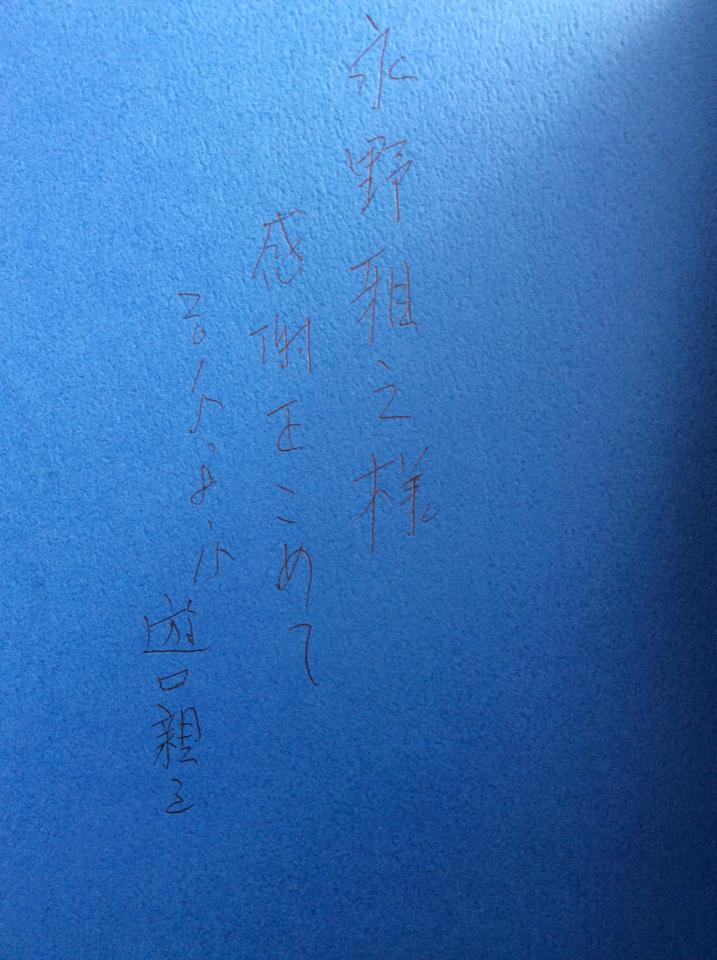 永野雅之様
感謝をこめて
2015.8.15
遊口親之